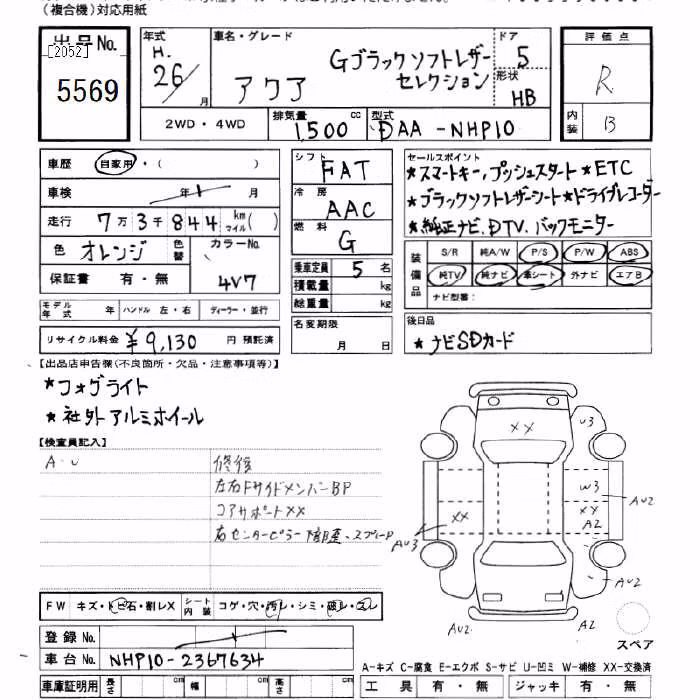 (複合機)対応用紙
出品No.
[2052]
5569
年式
H.
26/
月
車名・グレード
アクア
Gブラックソフトレザー
セレクション
ドア
5
形状
HB
評価点
R
内装
B
2WD・4WD
排気量
1,500 cc
型式
DAA-NHP10
車歴 自家用・( )
車検 年 月
走行 7万3千844 km マイル( )
色 オレンジ 色替 カラーNo. 4V7
保証書 有・無
モデル年式 年 ハンドル 左・右 ディーラー・並行
リサイクル料金 ¥9,130 円 預託済
シフト FAT
冷房 AAC
燃料 G
乗車定員 5 名
積載量 kg
総重量 kg
名変期限
月 日
セールスポイント
★スマートキー,プッシュスタート★ETC
★ブラックソフトレザーシート★ドライブレコーダー
★純正ナビ.DTV.バックモニター
装備品
S/R 純A/W P/S P/W ABS
純TV 純ナビ 革シート 外ナビ エアB
ナビ型番:
後日品
★ナビSDカード
【出品店申告欄(不良箇所・欠品・注意事項等)】
★フォグライト
★社外アルミホイール
【検査員記入】
A・U
修復
左右FサイドメンバーBP
コアサポートXX
右センターピラー
XX
U3
W3
XX
A2
AU2
XX
AU3
AU2
AU2
A2
スペア
FW キズ・トビ石・割レX シート内装 コゲ・穴・汚レ・シミ・破レ・スレ
登録No.
車台No. NHP10-2367634
車庫証明用 長さ cm 幅 cm 高さ cm
A-キズ C-腐食 E-エクボ S-サビ U-凹ミ W-補修 XX-交換済
工具 有・無 ジャッキ 有・無